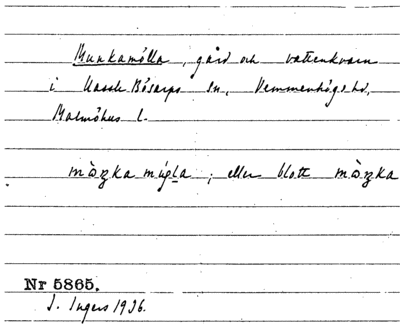 Munkamölla, gård och vattenkvarn
i Bösarps sn, Vemmenhögs hd,
Malmöhus l.
eller blott
Nr 5865.
I. Ingers 1936.